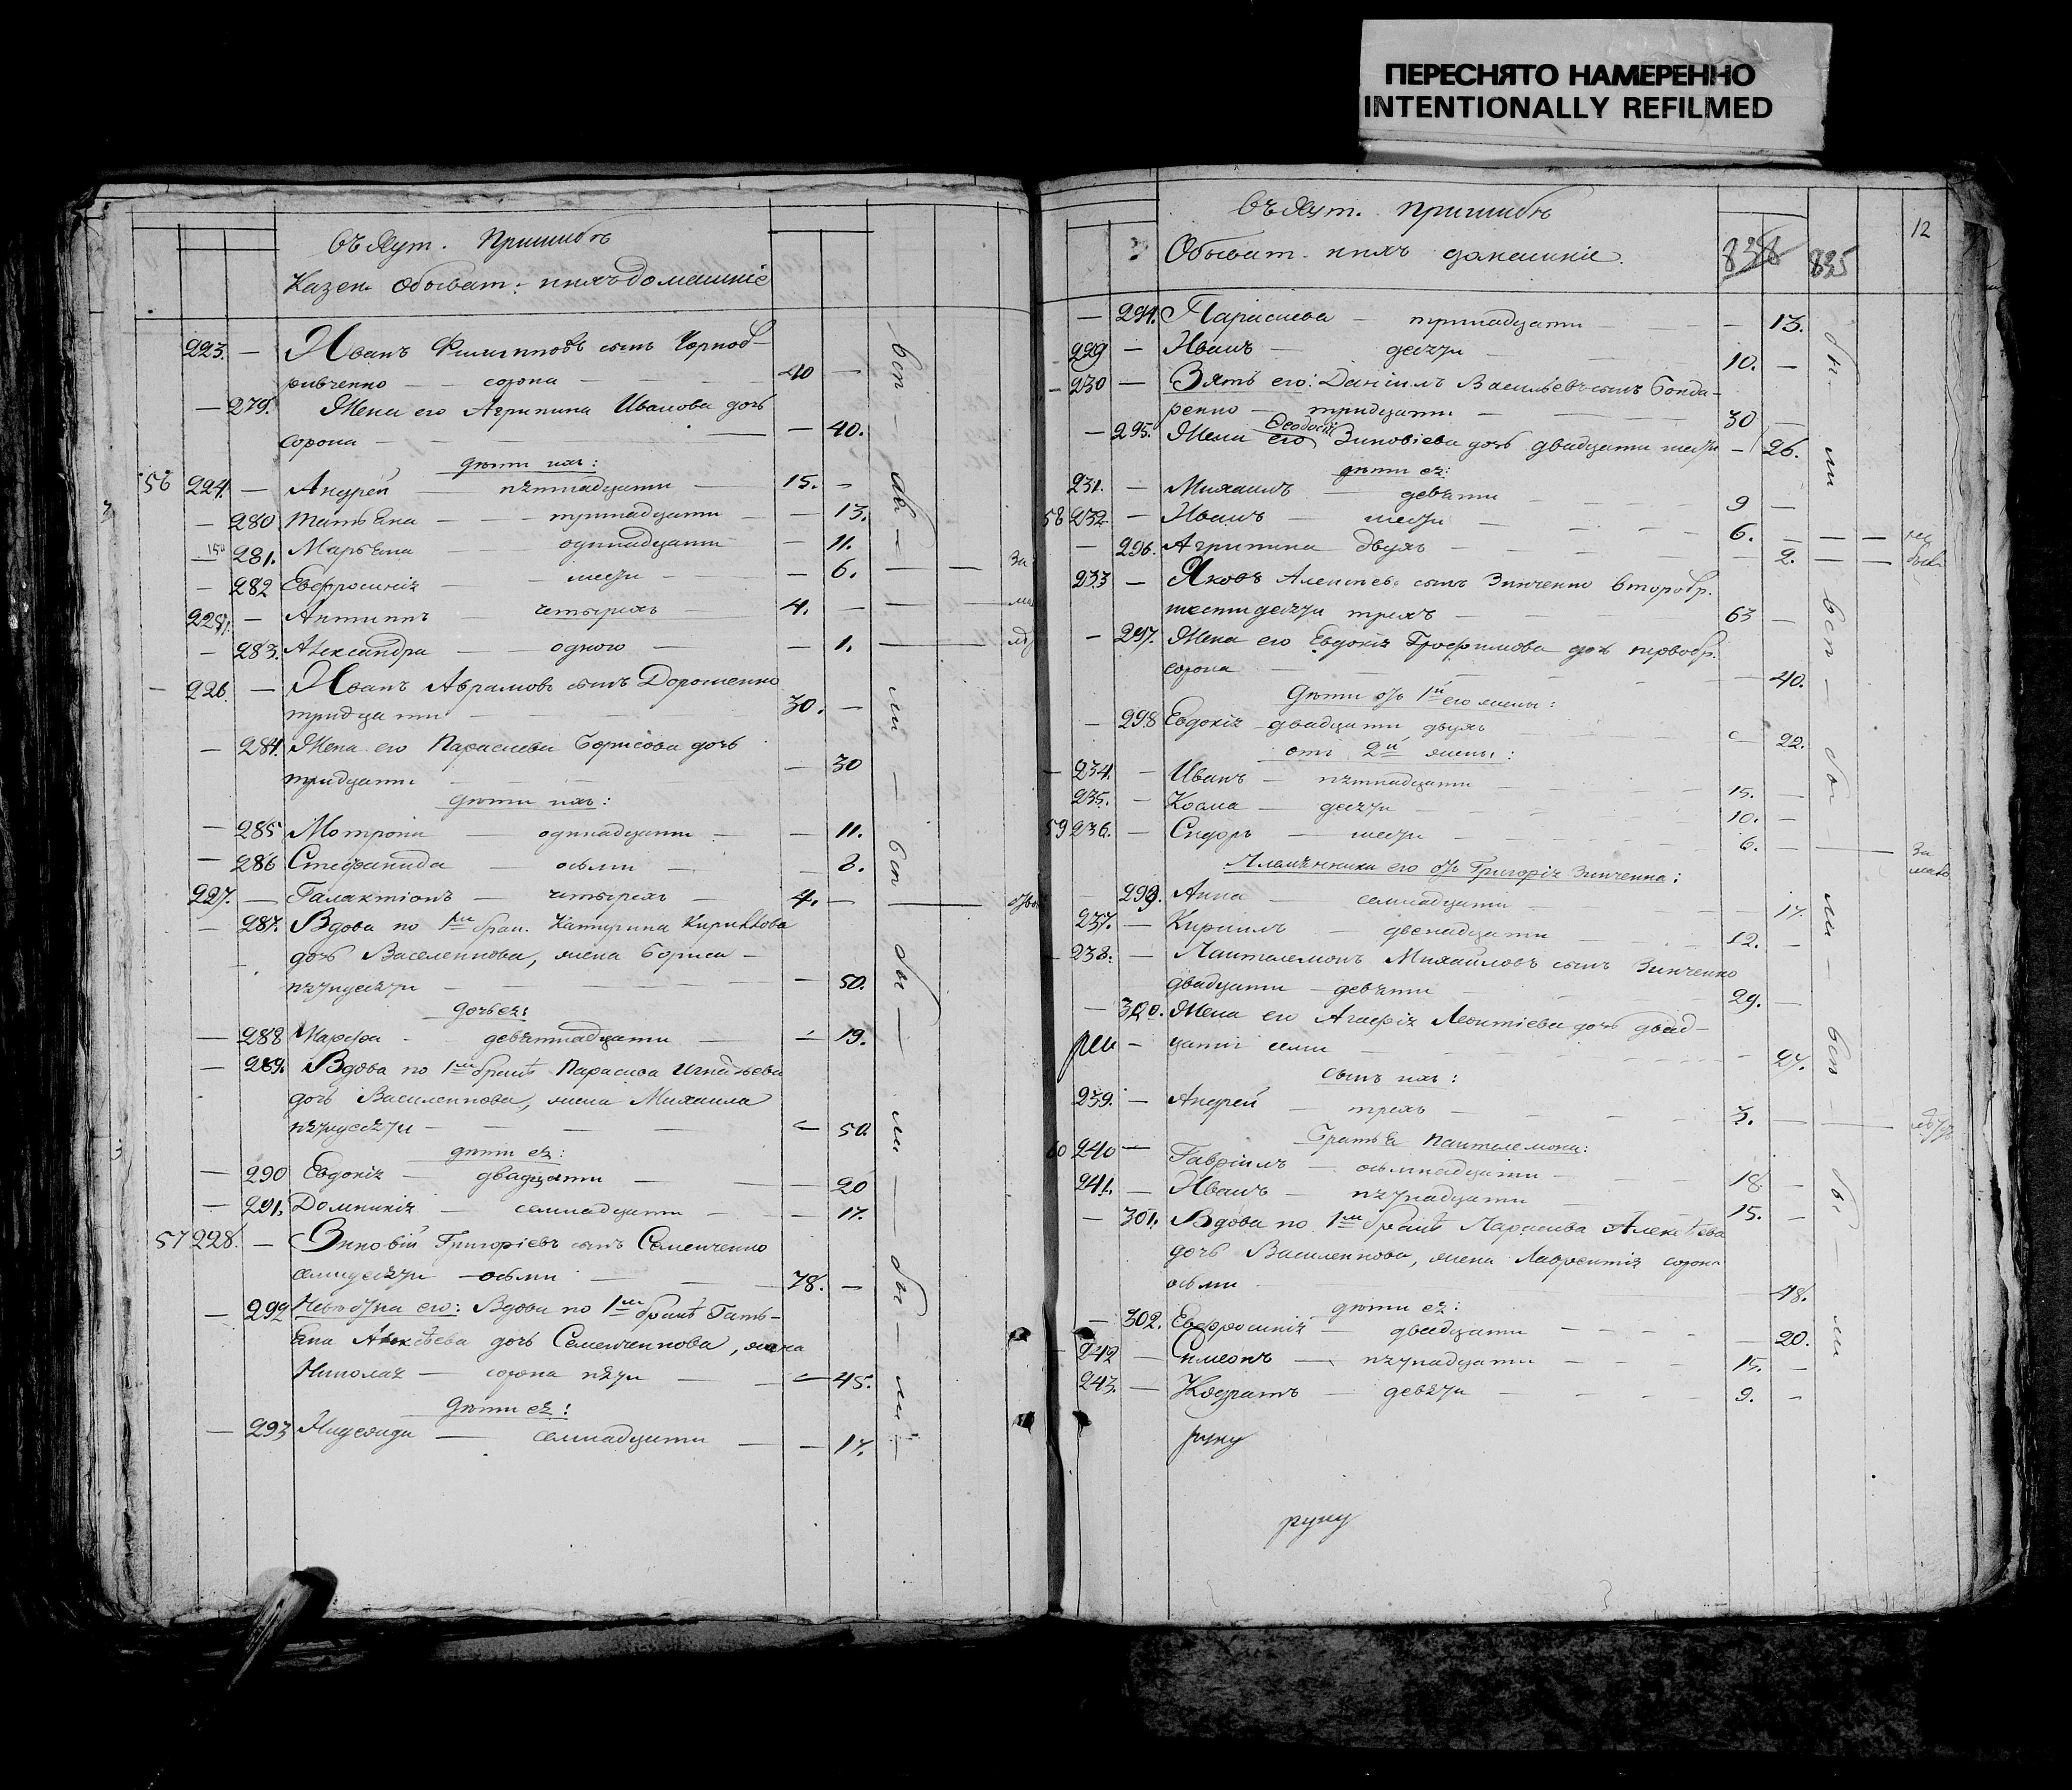 ПЕРЕСНЯТО НАМЕРЕННО
INTENTIONALLY REFILMED
въ Хут.
Казен. Обыват: ихъ домашніе
223. — Иванъ Филипповъ сынъ Чорноб-
ривченко — сорока — 40 —
— 279. Жена его Агрипина Иванова дочь
сорока — — 40.
дѣти ихъ:
56 224. — Андрей — пятнадцати — 15. —
— 280 Татьяна — тринадцати — — 13.
— 281. Марьяна одинадцати — — 11.
— 282 Евфросинія — шести — — 6. — — За
225. — Антипъ — четырехъ — 4. — —
— 283. Александра — одного — — 1. —
— 226. — Иванъ Абрамовъ сынъ Дорошенко
тридцати — 30. —
— 284. Жена его Параскева Борисова дочь
тридцати — — 30
дѣти ихъ:
— 285 Мотрона — одинадцати — — 11.
— 286 Стефанида — осьми — — 8.
227. — Галактіонъ — четырехъ — 4. —
— 287. Вдова по 1мъ брак. Катерина Кириллова
дочь Василенкова, жена Бориса —
пятидесяти — — 50.
дочь ея:
— 288 Марфа — девятнадцати — — 19.
— 289. Вдова по 1мъ бракѣ Параскева Игнатьева
дочь Василенкова, жена Михаила
пятидесяти — — 50.
дѣти ея:
— 290 Евдокія — двадцати — — 20
— 291. Домникія — семнадцати — — 17.
57 228. — Зиновій Григоріевъ сынъ Семенченко
семидесяти — осьми — 78. —
— 292 Невѣстка его: Вдова по 1мъ бракѣ Тать-
яна Алексѣева дочь Семенченкова, жена
Николая — сорока пяти — — 45.
Дѣти ея:
— 293 Надежда — семнадцати — — 17.
въ Хут.
Обыват. ихъ домашніе.
838 835
12
— 294. Параскева — тринадцати — — 13.
229 — Иванъ — десяти — 10. —
— 230 — Зять его: Даніилъ Васильевъ сынъ Бонда-
ренко — тридцати — 30
— 295. Жена его Феодосія Зиновіева дочь двадцати шести — 26.
дѣти ея:
231. — Михаилъ — девяти — 9 —
58 232. — Иванъ — шести — 6. —
— 296. Агрипина двухъ — — 2. —
233 — Яковъ Алексѣевъ сынъ Зинченко второбр.
шестидесяти трехъ — 63 —
— 297. Жена его Евдокія Трофимова дочь первобр.
сорока — 40.
Дѣти отъ 1й его жены:
— 298 Евдокія двадцати двухъ — 22.
отъ 2й жены:
— 234. — Иванъ — пятнадцати — 15. —
235. — Козма — десяти — 10. —
59 236. — Сидоръ — шести — 6. — За
Племянники его отъ Григорія Зинченка:
— 299. Анна — семнадцати — — 17.
237. — Кириилъ — двенадцати — 12. —
— 238. — Пантелемонъ Михайловъ сынъ Зинченко
двадцати — девяти — 29. —
— 300. Жена его Агафія Леонтіева дочь двад-
цати семи — — 27.
сынъ ихъ:
239. — Андрей — трехъ — 3. —
Братья Пантелемона:
60 240 — Гавріилъ — осьмнадцати — 18. —
241. — Иванъ — пятнадцати — 15. —
— 301. Вдова по 1мъ бракѣ Параскева Алексѣева
дочь Василенкова, жена Лаврентія сорока
осьми — 48.
дѣти ея:
— 302. Евфросинія — двадцати — — 20.
— 242 — Симеонъ — пятнадцати — 15. —
243. — Кодратъ — девяти — 9. —
руку
руку